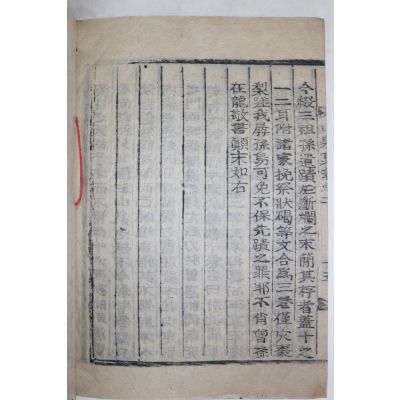 今綴三祖孫遺蹟於斷爛之末簡其存者蓋十之
一二耳附諸家挽祭狀碣等文合爲三卷僅灾棗
梨跬我孱孫曷可免不保先蹟之罪耶不肖曾孫
在龍敬書顚末如右